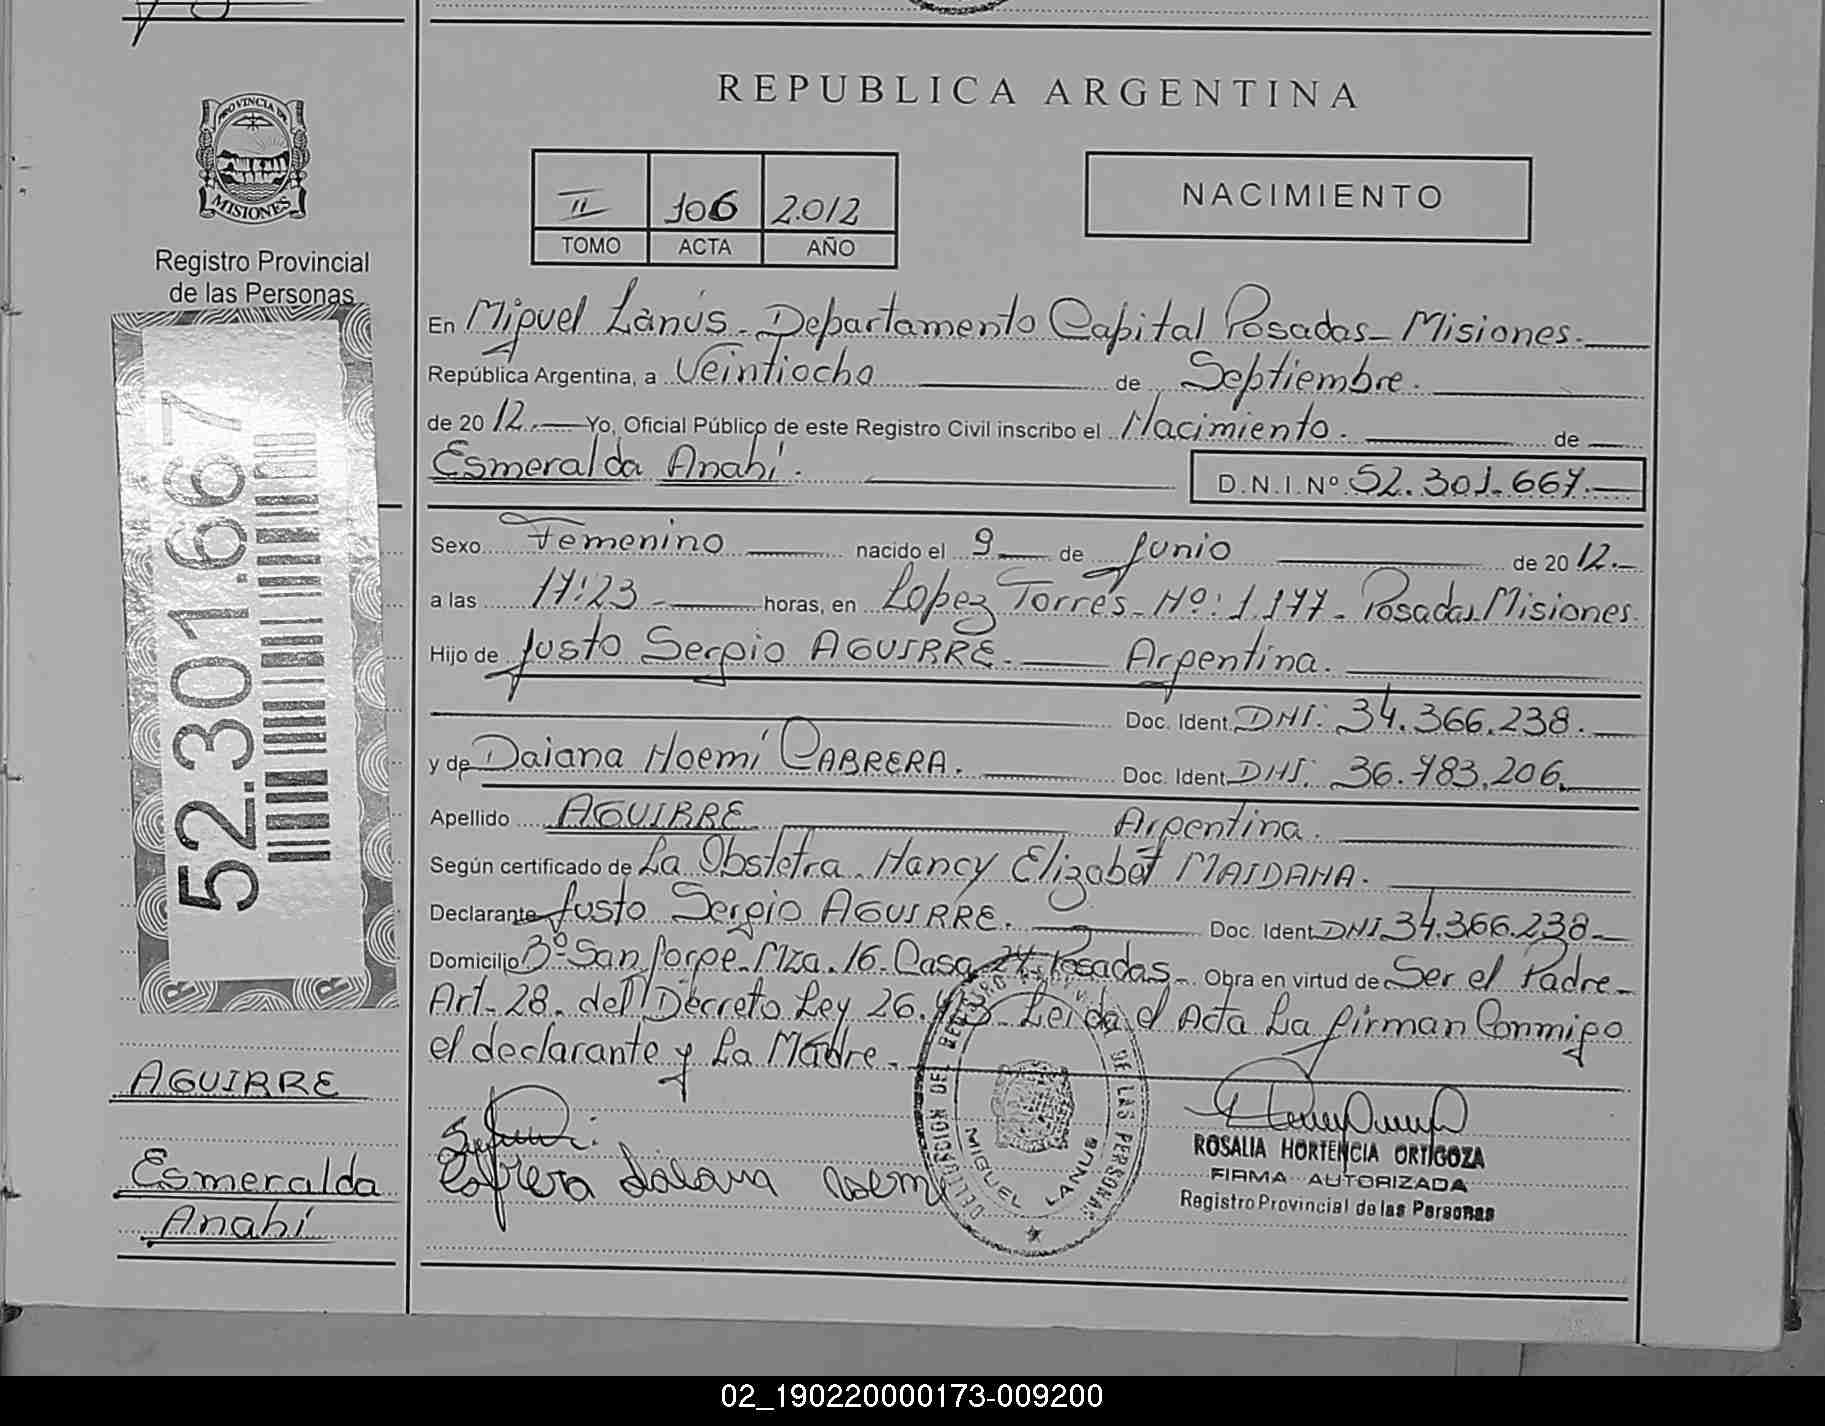 REPUBLICA ARGENTINA
PROVINCIA DE
MISIONES
Registro Provincial
de las Personas
II 106 2.012
TOMO ACTA AÑO
NACIMIENTO
52.301.667
En Miguel Lanús. Departamento Capital Posadas - Misiones.
República Argentina, a Veintiocho de Septiembre.
de 2012. Yo, Oficial Público de este Registro Civil inscribo el Nacimiento. de
Esmeralda Anahí.
D.N.I.Nº 52.301.667.
Sexo Femenino nacido el 9 de Junio de 2012.
a las 17:23 horas, en Lopez Torres - Nº: 1.177 - Posadas Misiones.
Hijo de Justo Sergio AGUIRRE. Argentina.
Doc. Ident. DNI: 34.366.238.
y de Daiana Noemí CABRERA. Doc. Ident. DNI: 36.783.206.
Apellido AGUIRRE Argentina.
Según certificado de La Obstetra. Nancy Elizabet MAIDANA.
Declarante Justo Sergio AGUIRRE. Doc. Ident DNI 34.366.238
Domicilio Bº San Jorge - Mza. 16. Casa 24 Posadas - Obra en virtud de Ser el Padre -
Art. 28. del Decreto Ley 26.413 - Leida el Acta La firman Conmigo
el declarante y La Madre.
AGUIRRE
Esmeralda
Anahí
Cabrera Daiana Noemi
DELEGACION DEL REGISTRO PROVINCIAL DE LAS PERSONAS
MIGUEL LANUS
ROSALIA HORTENCIA ORTIGOZA
FIRMA AUTORIZADA
Registro Provincial de las Personas
02_190220000173-009200